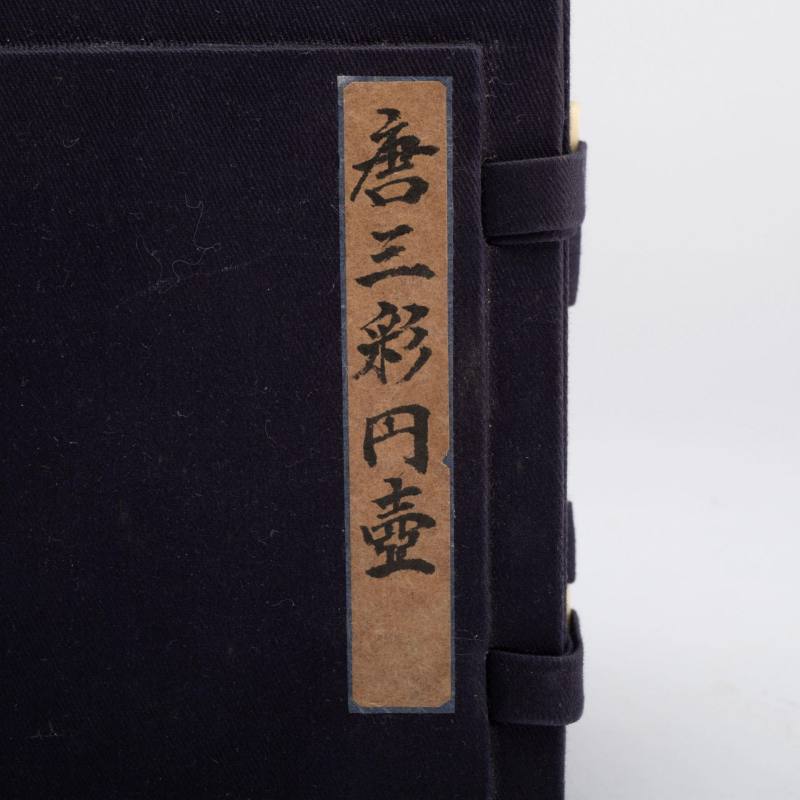 唐三彩円壺